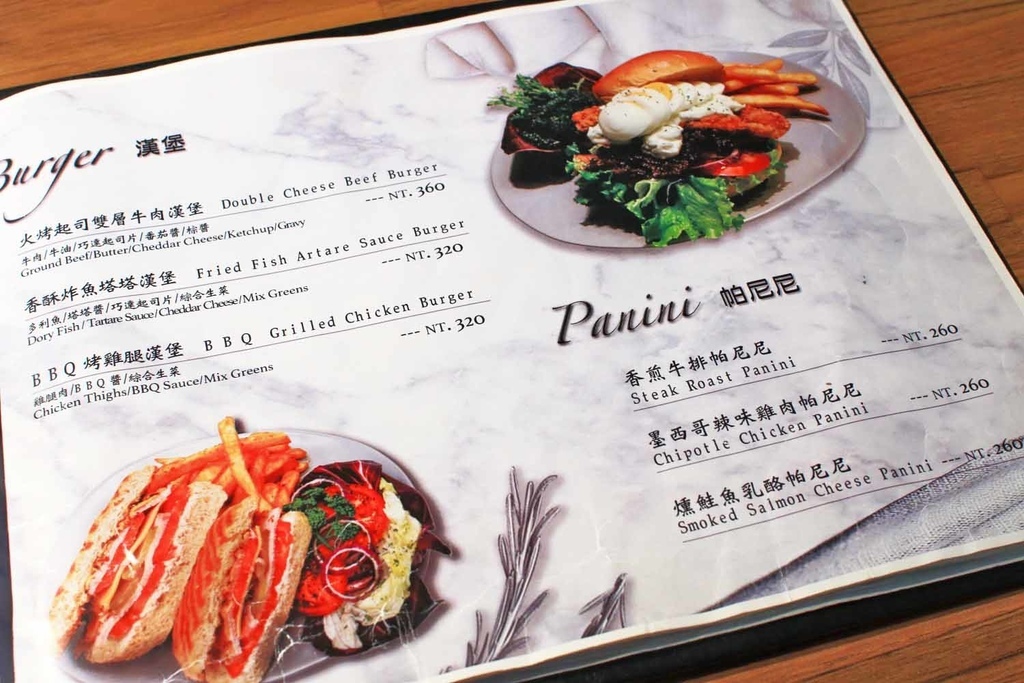 Burger 漢堡
火烤起司雙層牛肉漢堡 Double Cheese Beef Burger
--- NT. 360
牛肉/牛油/巧達起司片/番茄醬/棕醬
Ground Beef/Butter/Cheddar Cheese/Ketchup/Gravy
香酥炸魚塔塔漢堡 Fried Fish Artare Sauce Burger
--- NT. 320
多利魚/塔塔醬/巧達起司片/綜合生菜
Dory Fish/ Tartare Sauce/Cheddar Cheese/Mix Greens
BBQ烤雞腿漢堡 BBQ Grilled Chicken Burger
--- NT. 320
雞腿肉/BBQ醬/綜合生菜
Chicken Thighs/BBQ Sauce/Mix Greens
Panini 帕尼尼
香煎牛排帕尼尼
Steak Roast Panini --- NT. 260
墨西哥辣味雞肉帕尼尼
Chipotle Chicken Panini --- NT. 260
燻鮭魚乳酪帕尼尼
Smoked Salmon Cheese Panini --- NT. 260